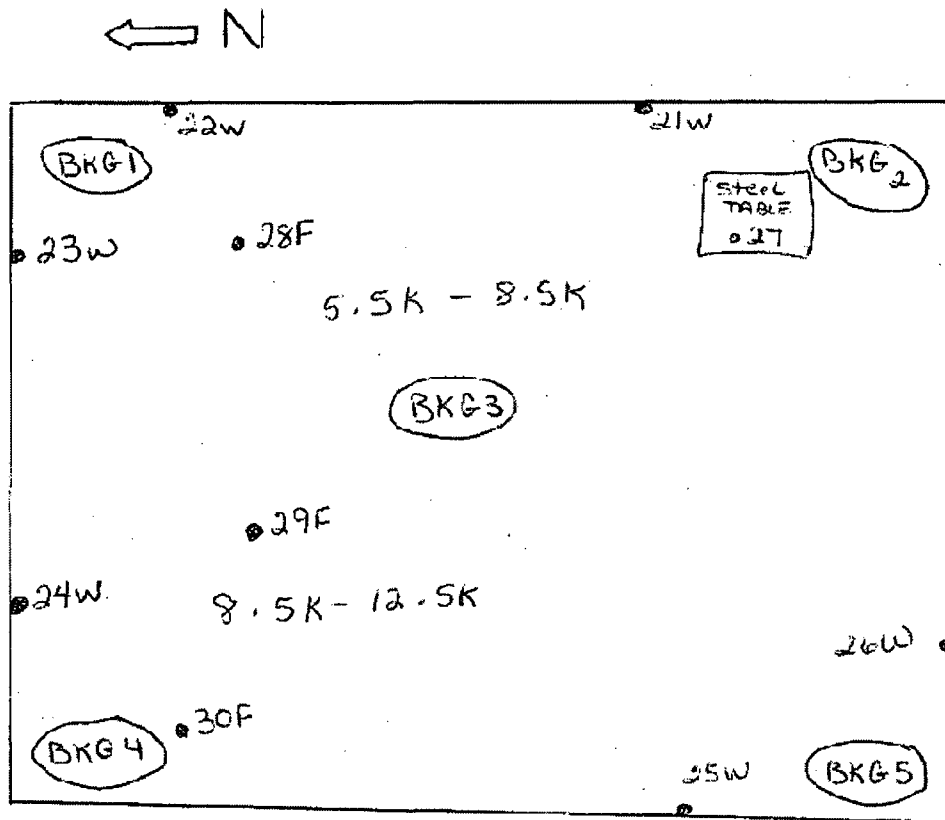 N
22W
21W
BKG1
BKG2
Steel
TABLE
27
23W
28F
5.5K - 8.5K
BKG3
29F
24W
8.5K - 12.5K
26W
30F
BKG4
25W
BKG5